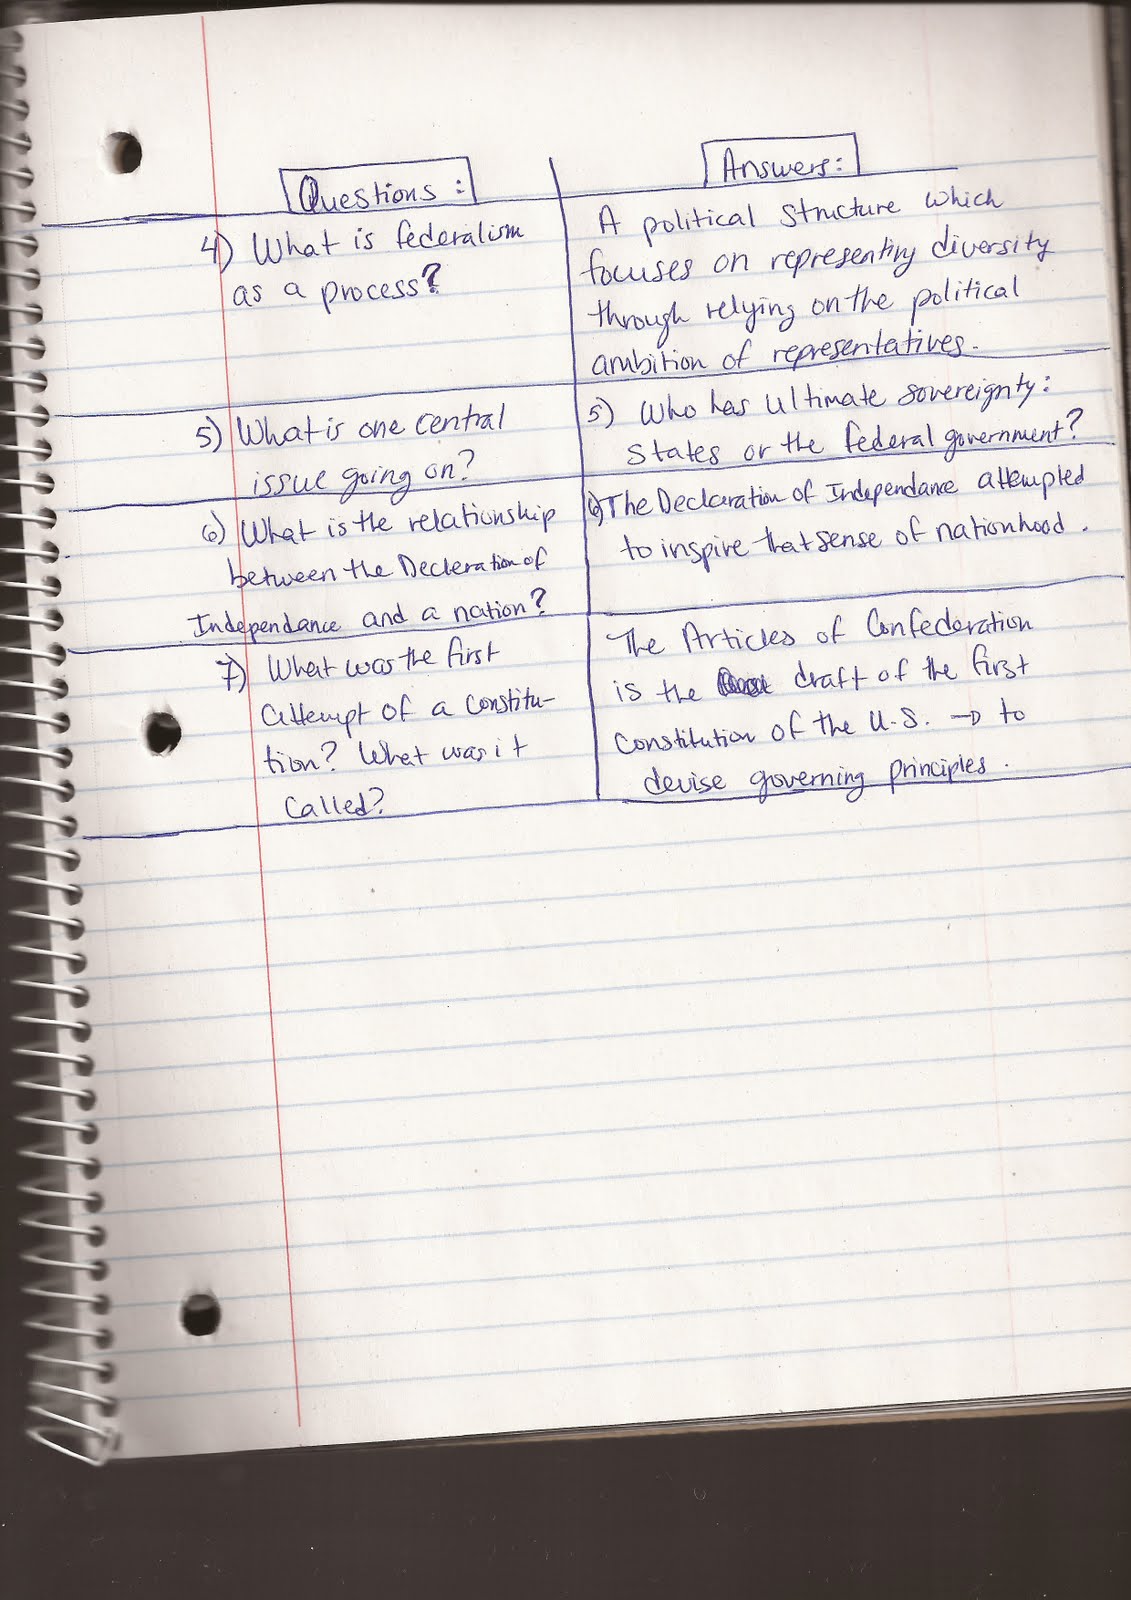 Questions :
Answers :
4) What is federalism
as a process?
A political structure which
focuses on representing diversity
through relying on the political
ambition of representatives.
5) What is one central
issue going on?
5) Who has ultimate sovereignty:
States or the federal government?
6) What is the relationship
between the Decleration of
Independance and a nation?
6) The Decleration of Independance attempted
to inspire that sense of nationhood.
7) What was the first
attempt of a constitu-
tion? What was it
called?
The Articles of Confederation
is the draft of the first
Constitution of the U.S. → to
devise governing principles.